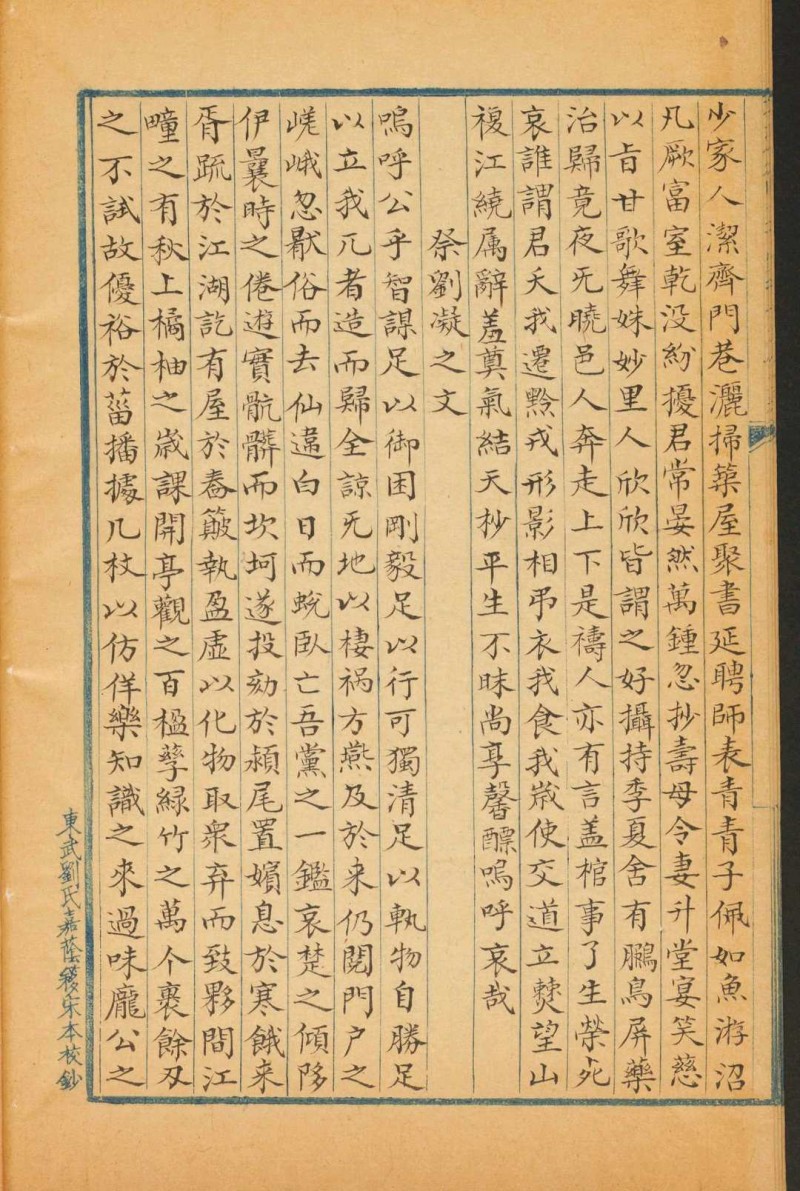 少家人潔齊門巷灑掃築屋聚書延聘師表青青子佩如魚游沼
凡厥富室乾没紛擾君常晏然萬鍾忽抄壽母令妻升堂宴笑慈
以旨甘歌舞姝妙里人欣欣皆謂之好攝持季夏舍有鵩鳥屏藥
治歸竟夜旡曉邑人奔走上下是禱人亦有言盖棺事了生榮死
哀誰謂君夭我遷黔戎形影相弔衣我食我嵗使交道立㷀望山
複江繞属辭羞奠氣結天杪平生不昧尚享馨醥嗚呼哀哉
祭劉凝之文
嗚呼公乎智謀足以御困剛毅足以行可獨清足以軌物自勝足
以立我兀者造而歸全諒旡地以棲禍方燕及於来仍閱門户之
嵯峨忽厭俗而去仙違白日而蛻臥亡吾黨之一鑑哀楚之傾陊
伊曩時之倦遊實骯髒而坎坷遂投劾於潁尾置嬪息於寒餓来
胥疏於江湖訖有屋於舂簸執盈虛以化物取衆弃而致夥間江
疃之有秋上橘柚之嵗課開亭觀之百楹孳緑竹之萬个裹餘刄
之不試故優裕於菑播據几杖以仿佯樂知識之來過味龐公之
東武劉氏嘉蔭簃宋本校鈔